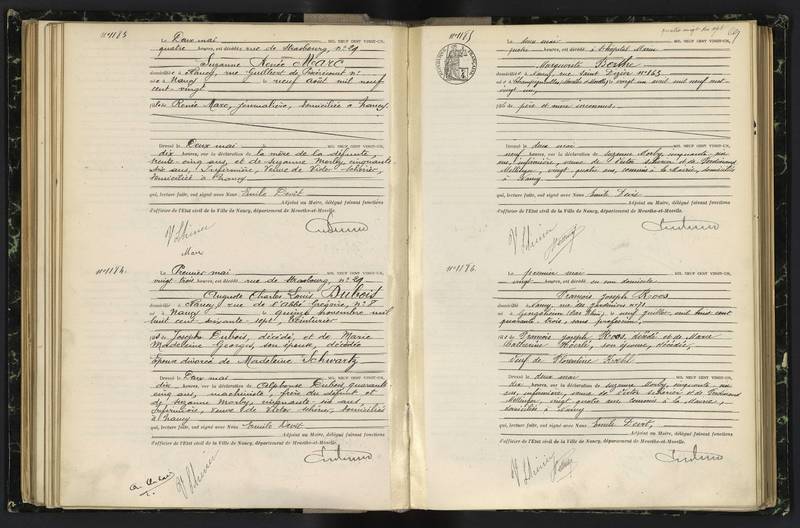 N° 1183
Le Deux mai MIL NEUF CENT VINGT-UN,
quatre heures, est décédée rue de Strasbourg, n° 29
Suzanne Renée Marc
domiciliée à Nancy, rue Guilbert de Pixérécourt n°
née à Nancy le neuf août mil neuf
cent vingt
fille de Renée Marc, journalière, domiciliée à Nancy.
Dressé le Deux mai MIL NEUF CENT VINGT-UN,
dix heures, sur la déclaration de la mère de la défunte,
trente cinq ans, et de Suzanne Morby, cinquante
six ans, Infirmière, veuve de Victor Scherier,
domiciliées à Nancy
qui, lecture faite, ont signé avec Nous Emile Devit
Adjoint au Maire, délégué faisant fonctions
d'officier de l'Etat civil de la Ville de Nancy, département de Meurthe-et-Moselle.
Marc
N° 1184
Le Premier mai MIL NEUF CENT VINGT-UN,
vingt trois heures, est décédé rue de Strasbourg, n° 29
Auguste Charles Louis Dubois
domicilié à Nancy, rue de l'Abbé Grégoire, n° 8
né à Nancy le quinze novembre mil
huit cent soixante-sept, Teinturier
fils de Joseph Dubois, décédé, et de Marie
Madeleine Georges, son épouse, décédée
Epoux divorcé de Madeleine Schwartz
Dressé le Deux mai MIL NEUF CENT VINGT-UN,
dix heures, sur la déclaration de Alphonse Dubois, quarante
cinq ans, machiniste, frère du défunt et
de Suzanne Morby, cinquante-six ans,
Infirmière, veuve de Victor Scherier, domiciliés
à Nancy
qui, lecture faite, ont signé avec Nous Emile Devit
Adjoint au Maire, délégué faisant fonctions
d'officier de l'Etat civil de la Ville de Nancy, département de Meurthe-et-Moselle.
quatre vingt dix sept
N° 1185
Le deux mai MIL NEUF CENT VINGT-UN,
quatre heures, est décédée à l'hôpital Marin
Marguerite Berthe
domiciliée à Nancy, rue Saint Dizier n° 163
née à le vingt un avril mil neuf cent
vingt un,
fille de père et mère inconnus.
Dressé le deux mai MIL NEUF CENT VINGT-UN,
neuf heures, sur la déclaration de Suzanne Morby, cinquante six
ans, infirmière, veuve de Victor Scherier et de Ferdinand
vingt quatre ans, commis à la Mairie, domiciliés
à Nancy
qui, lecture faite, ont signé avec Nous Emile Devit
Adjoint au Maire, délégué faisant fonctions
d'officier de l'Etat civil de la Ville de Nancy, département de Meurthe-et-Moselle.
N° 1186
Le premier mai MIL NEUF CENT VINGT-UN,
vingt heures, est décédé en son domicile
François Joseph Roos
domicilié à Nancy, rue des Jardiniers n° 71
né à (Bas Rhin), le neuf juillet mil huit cent
quarante-trois, sans profession,
fils de François Joseph Roos, décédé et de Marie
Catherine son épouse, décédée,
Veuf de Florentine
Dressé le deux mai MIL NEUF CENT VINGT-UN,
dix heures, sur la déclaration de Suzanne Morby, cinquante-six
ans, infirmière, veuve de Victor Scherier et de Ferdinand
vingt quatre ans, commis à la Mairie,
domiciliés à Nancy
qui, lecture faite, ont signé avec Nous Emile Devit,
Adjoint au Maire, délégué faisant fonctions
d'officier de l'Etat civil de la Ville de Nancy, département de Meurthe-et-Moselle.